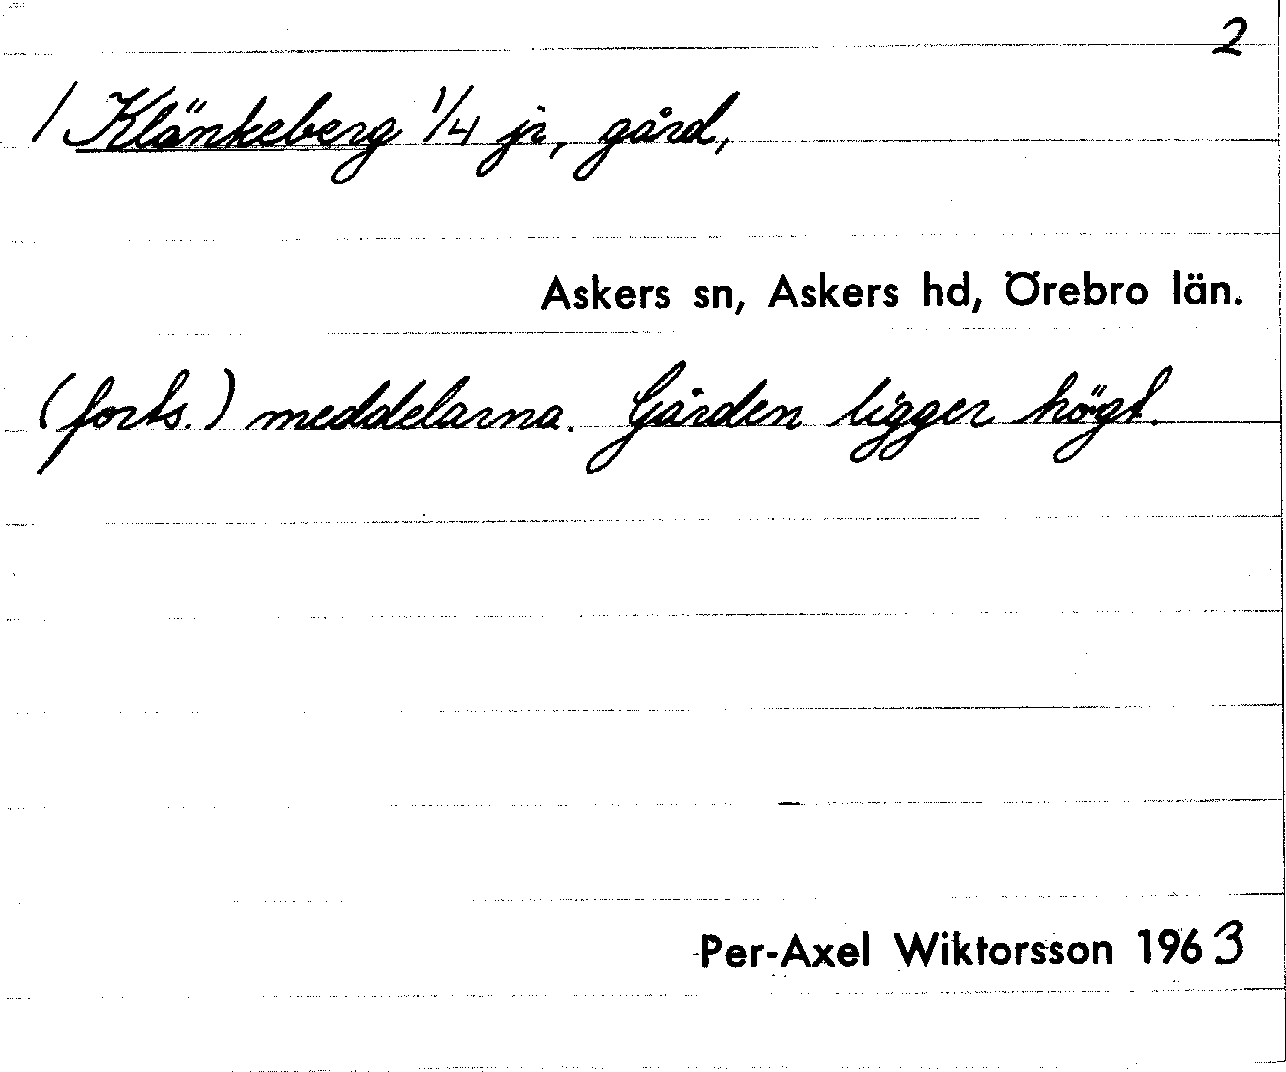 2
/ Klänkeberg 1/4 jr, gård,
Askers sn, Askers hd, Örebro län.
(forts.) meddelarna. Gården ligger högt.
Per-Axel Wiktorsson 1963